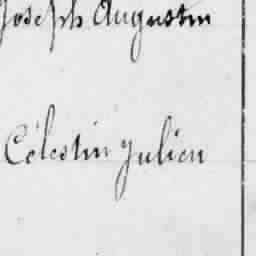 Joseph Augustin
Célestin Julien